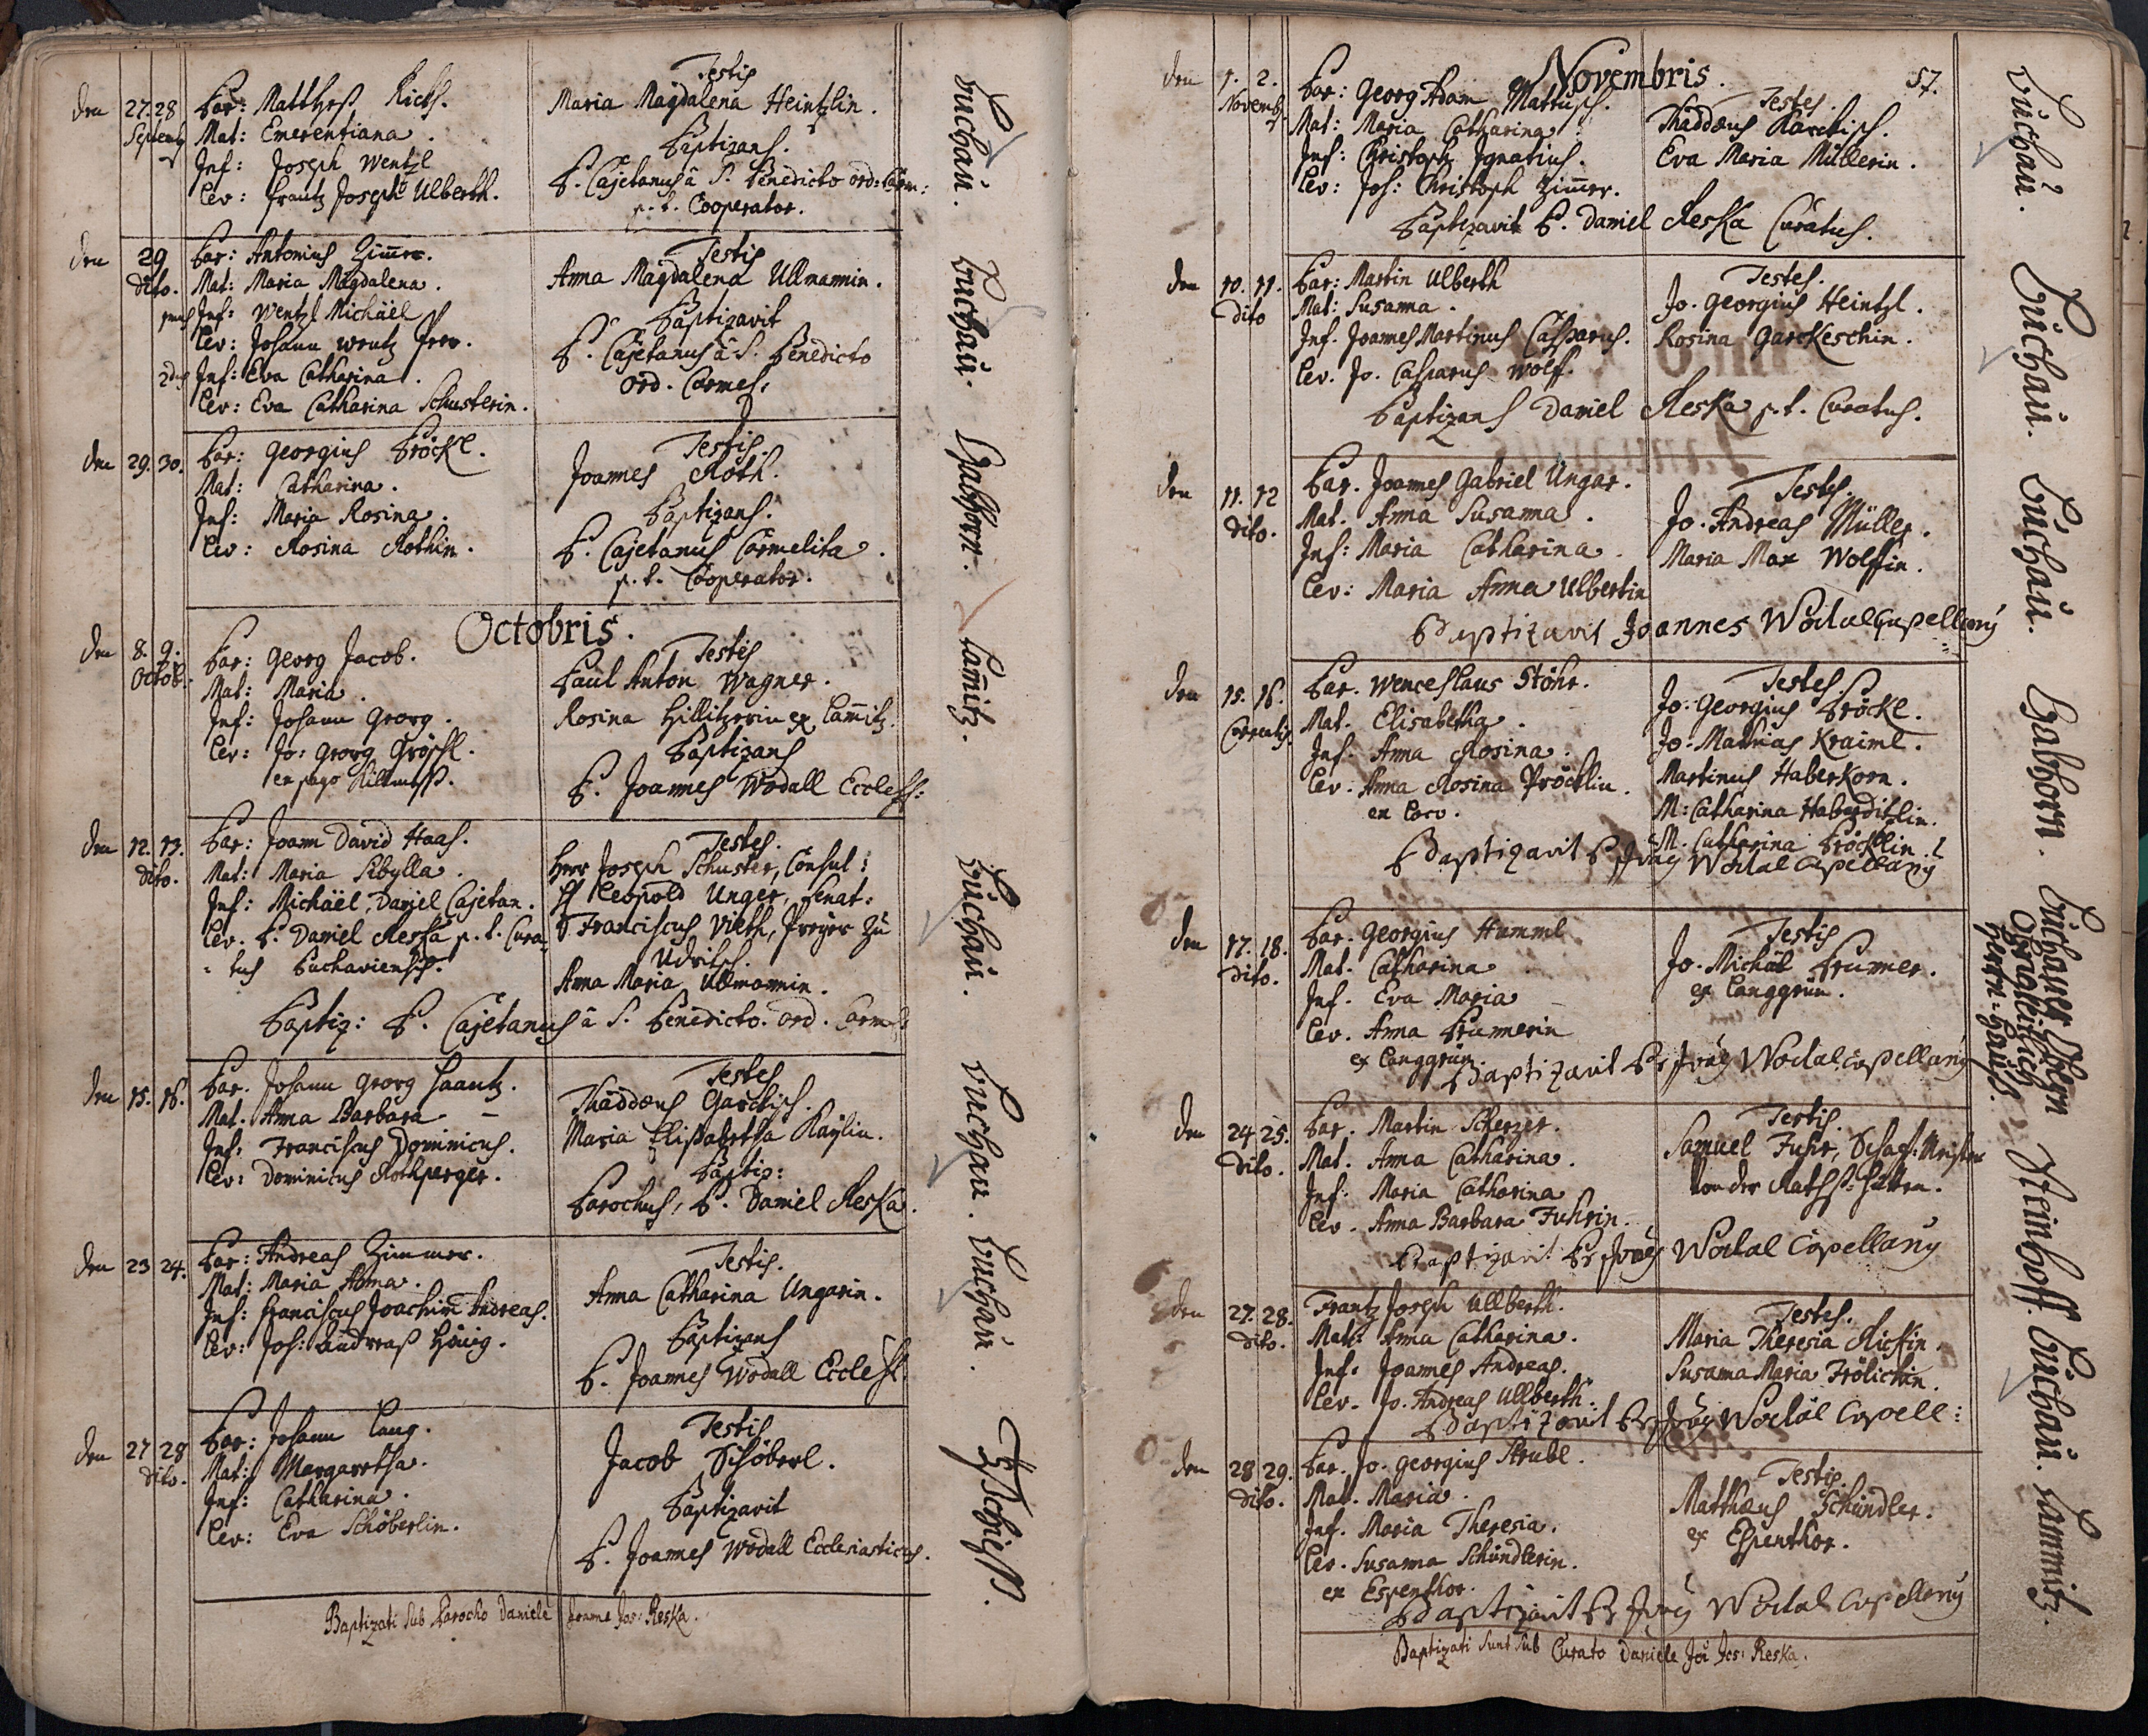 den 27. 28 Septemb
Par: Matthes Richs.
Mat: Emerentiana.
Inf: Joseph Wentzl
Lev: Frantz Joseph Ulberth.
Testis
Maria Magdalena Heintzlin.
Baptizans.
P. Cajetanus â S. Benedicto ord: Carm:
p. t. Cooperator.
Buchau.
den 29 dito.
Par: Antonius Zimer.
Mat: Maria Magdalena.
Inf: Wentzl Michäel
Lev: Johann Wentz
2dus Inf: Eva Catharina.
Lev: Eva Catharina Schusterin.
Testis
Anna Magdalena Ullmannin.
Baptizavit
P. Cajetanus â S. Benedicto
ord. Carmel:
Buchau.
den 29. 30.
Par: Georgius Pröckl.
Mat: Catharina.
Inf: Maria Rosina.
Lev: Rosina Rothin.
Testis.
Joannes Roth.
Baptizans.
P. Cajetanus Carmelita.
p. t. Cooperator.
Gabhorn.
Octobris.
den 8. 9. Octob.
Par: Georg Jacob.
Mat: Maria.
Inf: Johann Georg.
Lev: Jo: Georg Gröschl.
ex pago
Testes
Paul Anton Wagner.
Rosina Hillitzerin ex Lamitz.
Baptizans
P. Joannes Wodall Eccless:
Lamitz.
den 12. 13. dito.
Par: Joann David Haas.
Mat: Maria Sibylla.
Inf: Michäel, Daniel Cajetan.
Lev. P. Daniel Reska p. t. Cura=
=tus Buchaviensis.
Testes.
Herr Joseph Schuster, Consul:
H Leopold Unger, Senat:
Franciscus Vieth, Preyer zu
Udritsch.
Anna Maria Ullmannin.
Baptiz: P. Cajetanus â S. Benedicto. ord. Carmel:
Buchau.
den 15. 16.
Par. Johann Georg Haantz.
Mat. Anna Barbara
Inf: Franciscus Dominicus.
Lev: Dominicus Rothperger.
Testes
Thaddæus Garckisch.
Maria Elisabetha Kaylin.
Baptiz:
Parochus, P. Daniel Reska.
Buchau.
den 23 24.
Par: Andreas Zimmer.
Mat: Maria Anna.
Inf: Franciscus Joachim Andreas.
Lev: Joh: Andreas Hönig.
Testis.
Anna Catharina Ungarin.
Baptizans
P. Joannes Wodall Eccless.
Buchau.
den 27 28 dito.
Par: Johann Lang.
Mat: Margaretha.
Inf: Catharina.
Lev: Eva Schöberlin.
Testis
Jacob Schöberl.
Baptizavit
P. Joannes Wodall Ecclesiasticus.
Tschiess.
Baptizati sub Parocho Daniele Joanne Jos: Reska.
Novembris.
57.
den 1. 2. Novemb
Par: Georg Adam Mattusch.
Mat: Maria Catharina.
Inf: Christoph Ignatius.
Lev: Joh: Christoph Zimer.
Testes.
Thaddæus Karckisch.
Eva Maria Müllerin.
Baptizavit P. Daniel Reska Curatus.
Buchau.
den 10. 11. Dito
Par: Martin Ulberth
Mat: Susanna.
Inf. Joannes Martinus Casparus.
Lev. Jo. Casparus Wolff.
Testes.
Jo. Georgius Heintzl.
Rosina Garckeschin.
Baptizans Daniel Reska p. t. Curatus.
Buchau.
den 11. 12 dito.
Par. Joannes Gabriel Ungar.
Mat. Anna Susanna.
Inf: Maria Catharina.
Lev: Maria Anna Ulbertin
Testes.
Jo. Andreas Müller.
Maria Max Wolffin.
Baptizavit Joannes Wodal Capellany
Buchau.
den 15. 16. Correntis.
Par. Wenceslaus Stöhr.
Mat. Elisabetha.
Inf. Anna Rosina.
Lev. Anna Rosina Pröcklin.
ex Loco.
Testes.
Jo. Georgius Pröckl.
Jo: Mathias Kraiml.
Martinus Haberkorn.
M: Catharina Haberditzlin.
M. Catharina Pröcklin.
Baptizavit P Joäy Wodal Capellany
Gabhorn.
den 17. 18. dito.
Par. Georgius Humml.
Mat. Catharina
Inf. Eva Maria
Lev. Anna Prumerin
ex Langgrün.
Testis
Jo. Michäel Prumer.
ex Langgrün.
Baptizavit Pr Joäy Wodal Capellany
Buchauer Obern
Herrn-Hauß.
den 24 25. dito.
Par. Martin Scherzer.
Mat. Anna Catharina.
Inf: Maria Catharina
Lev. Anna Barbara Fuhrin.
Testis.
Samuel Fuhr,
von der
Baptizavit Pr Joäy Wodal Capellany
Steinhoff.
den 27. 28. dito.
Frantz Joseph Ullberth.
Mat: Anna Catharina.
Inf: Joannes Andreas.
Lev. Jo. Andreas Ullberth.
Testes.
Maria Theresia Richin.
Susanna Maria Frölichin.
Baptizavit Pr Joäy Wodal Capell:
Buchau.
den 28 29. dito.
Par. Jo. Georgius Strubl.
Mat. Maria.
Inf. Maria Theresia.
Lev. Susanna Schündlerin.
ex Espenthor.
Testis.
Matthæus Schündler.
ex Espenthor.
Baptizavit Pr Joäy Wodal Capellany
Lammitz.
Baptizati sunt sub Curato Daniele Joä Jos: Reska.